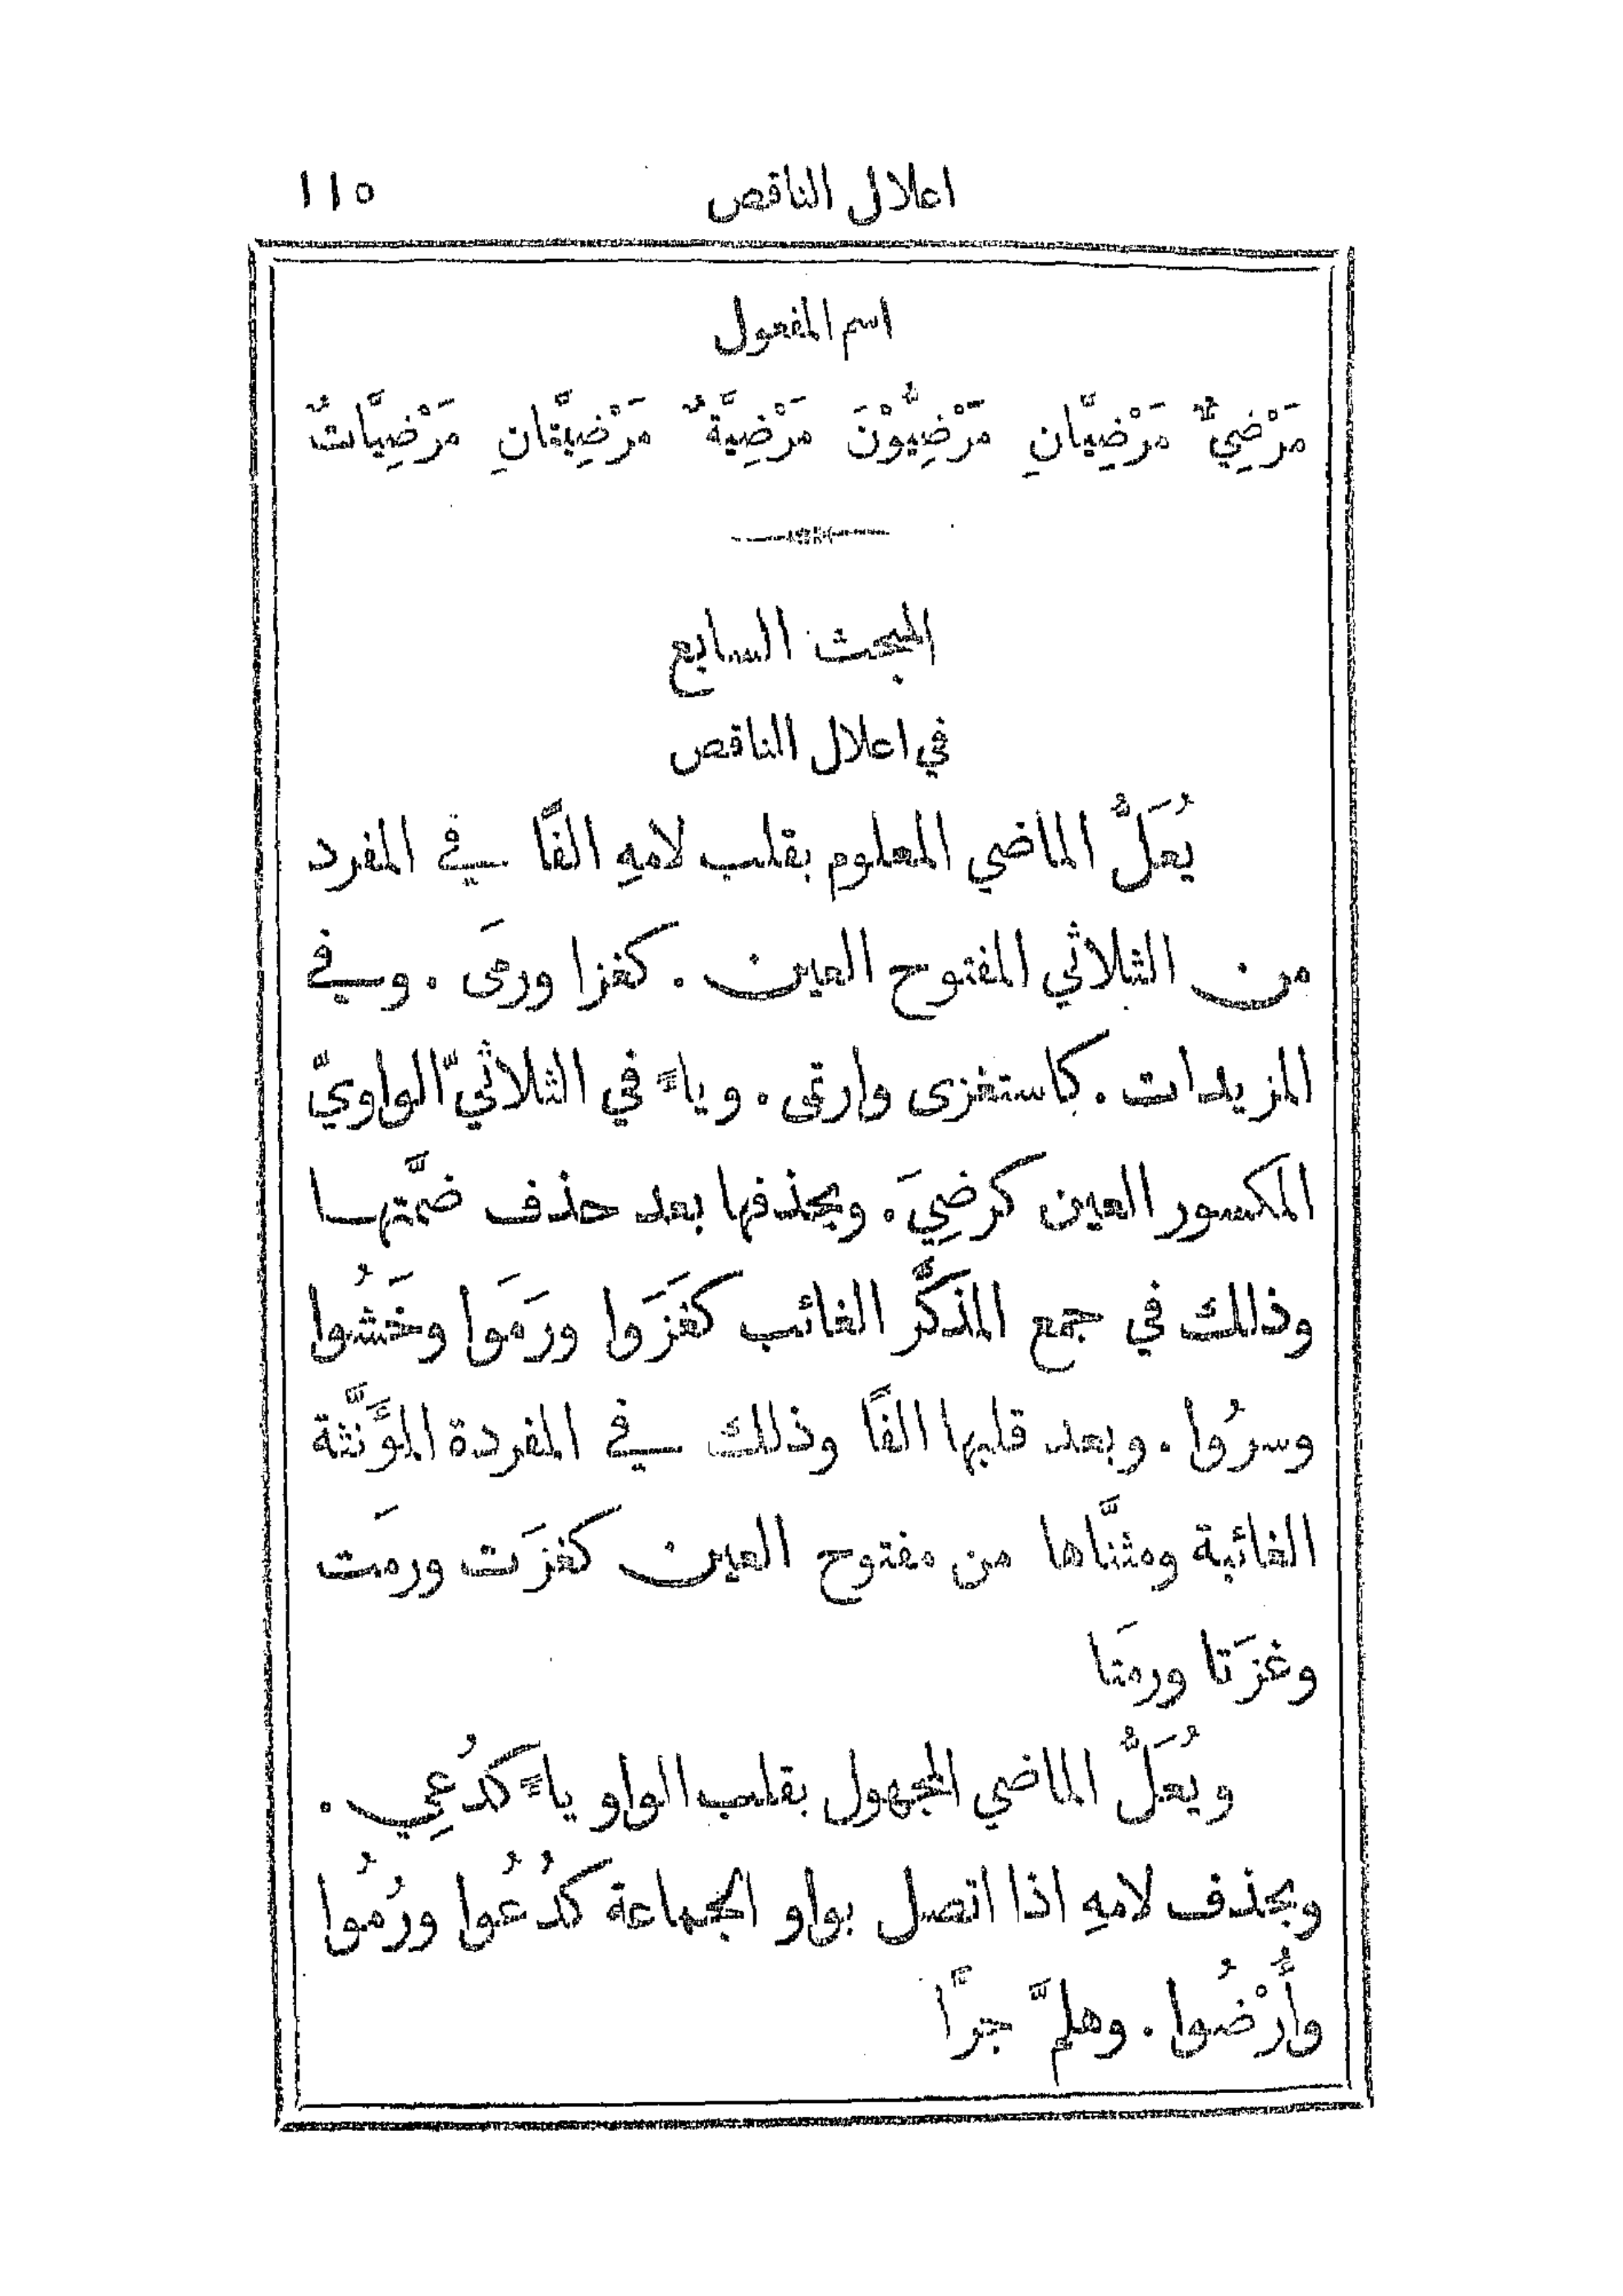 اعلال الناقص ١١٥
اسم المفعول
مَرْضِيٌّ مَرْضِيَّانِ مَرْضِيُّوْنَ مَرْضِيَّةٌ مَرْضِيَّتَانِ مَرْضِيَّاتٌ
المبحث السابع
في اعلال الناقص
يُعَلُّ الماضي المعلوم بقلب لامهِ الفًا في المفرد
من الثلاثي المفتوح العين . كغزا ورمَى . وفي
المزيدات . كاستغزى وارتمى . وياءً في الثلاثيّ الواويّ
المكسور العين كرضِيَ . وبحذفها بعد حذف ضمَّتها
وذلك في جمع المذكَّر الغائب كغَزَوا ورَمَوا وخَشُوا
وسرُوا . وبعد قلبها الفًا وذلك في المفردة المؤَنَّثة
الغائبة ومثنَّاها من مفتوح العين كغزَت ورمَت
وغزَتا ورمَتا
ويُعَلُّ الماضي المجهول بقلب الواو ياءً كدُعِي .
وبحذف لامهِ اذا اتصل بواو الجماعة كدُعُوا ورُمُوا
وأُرْضُوا . وهلمَّ جرًّا